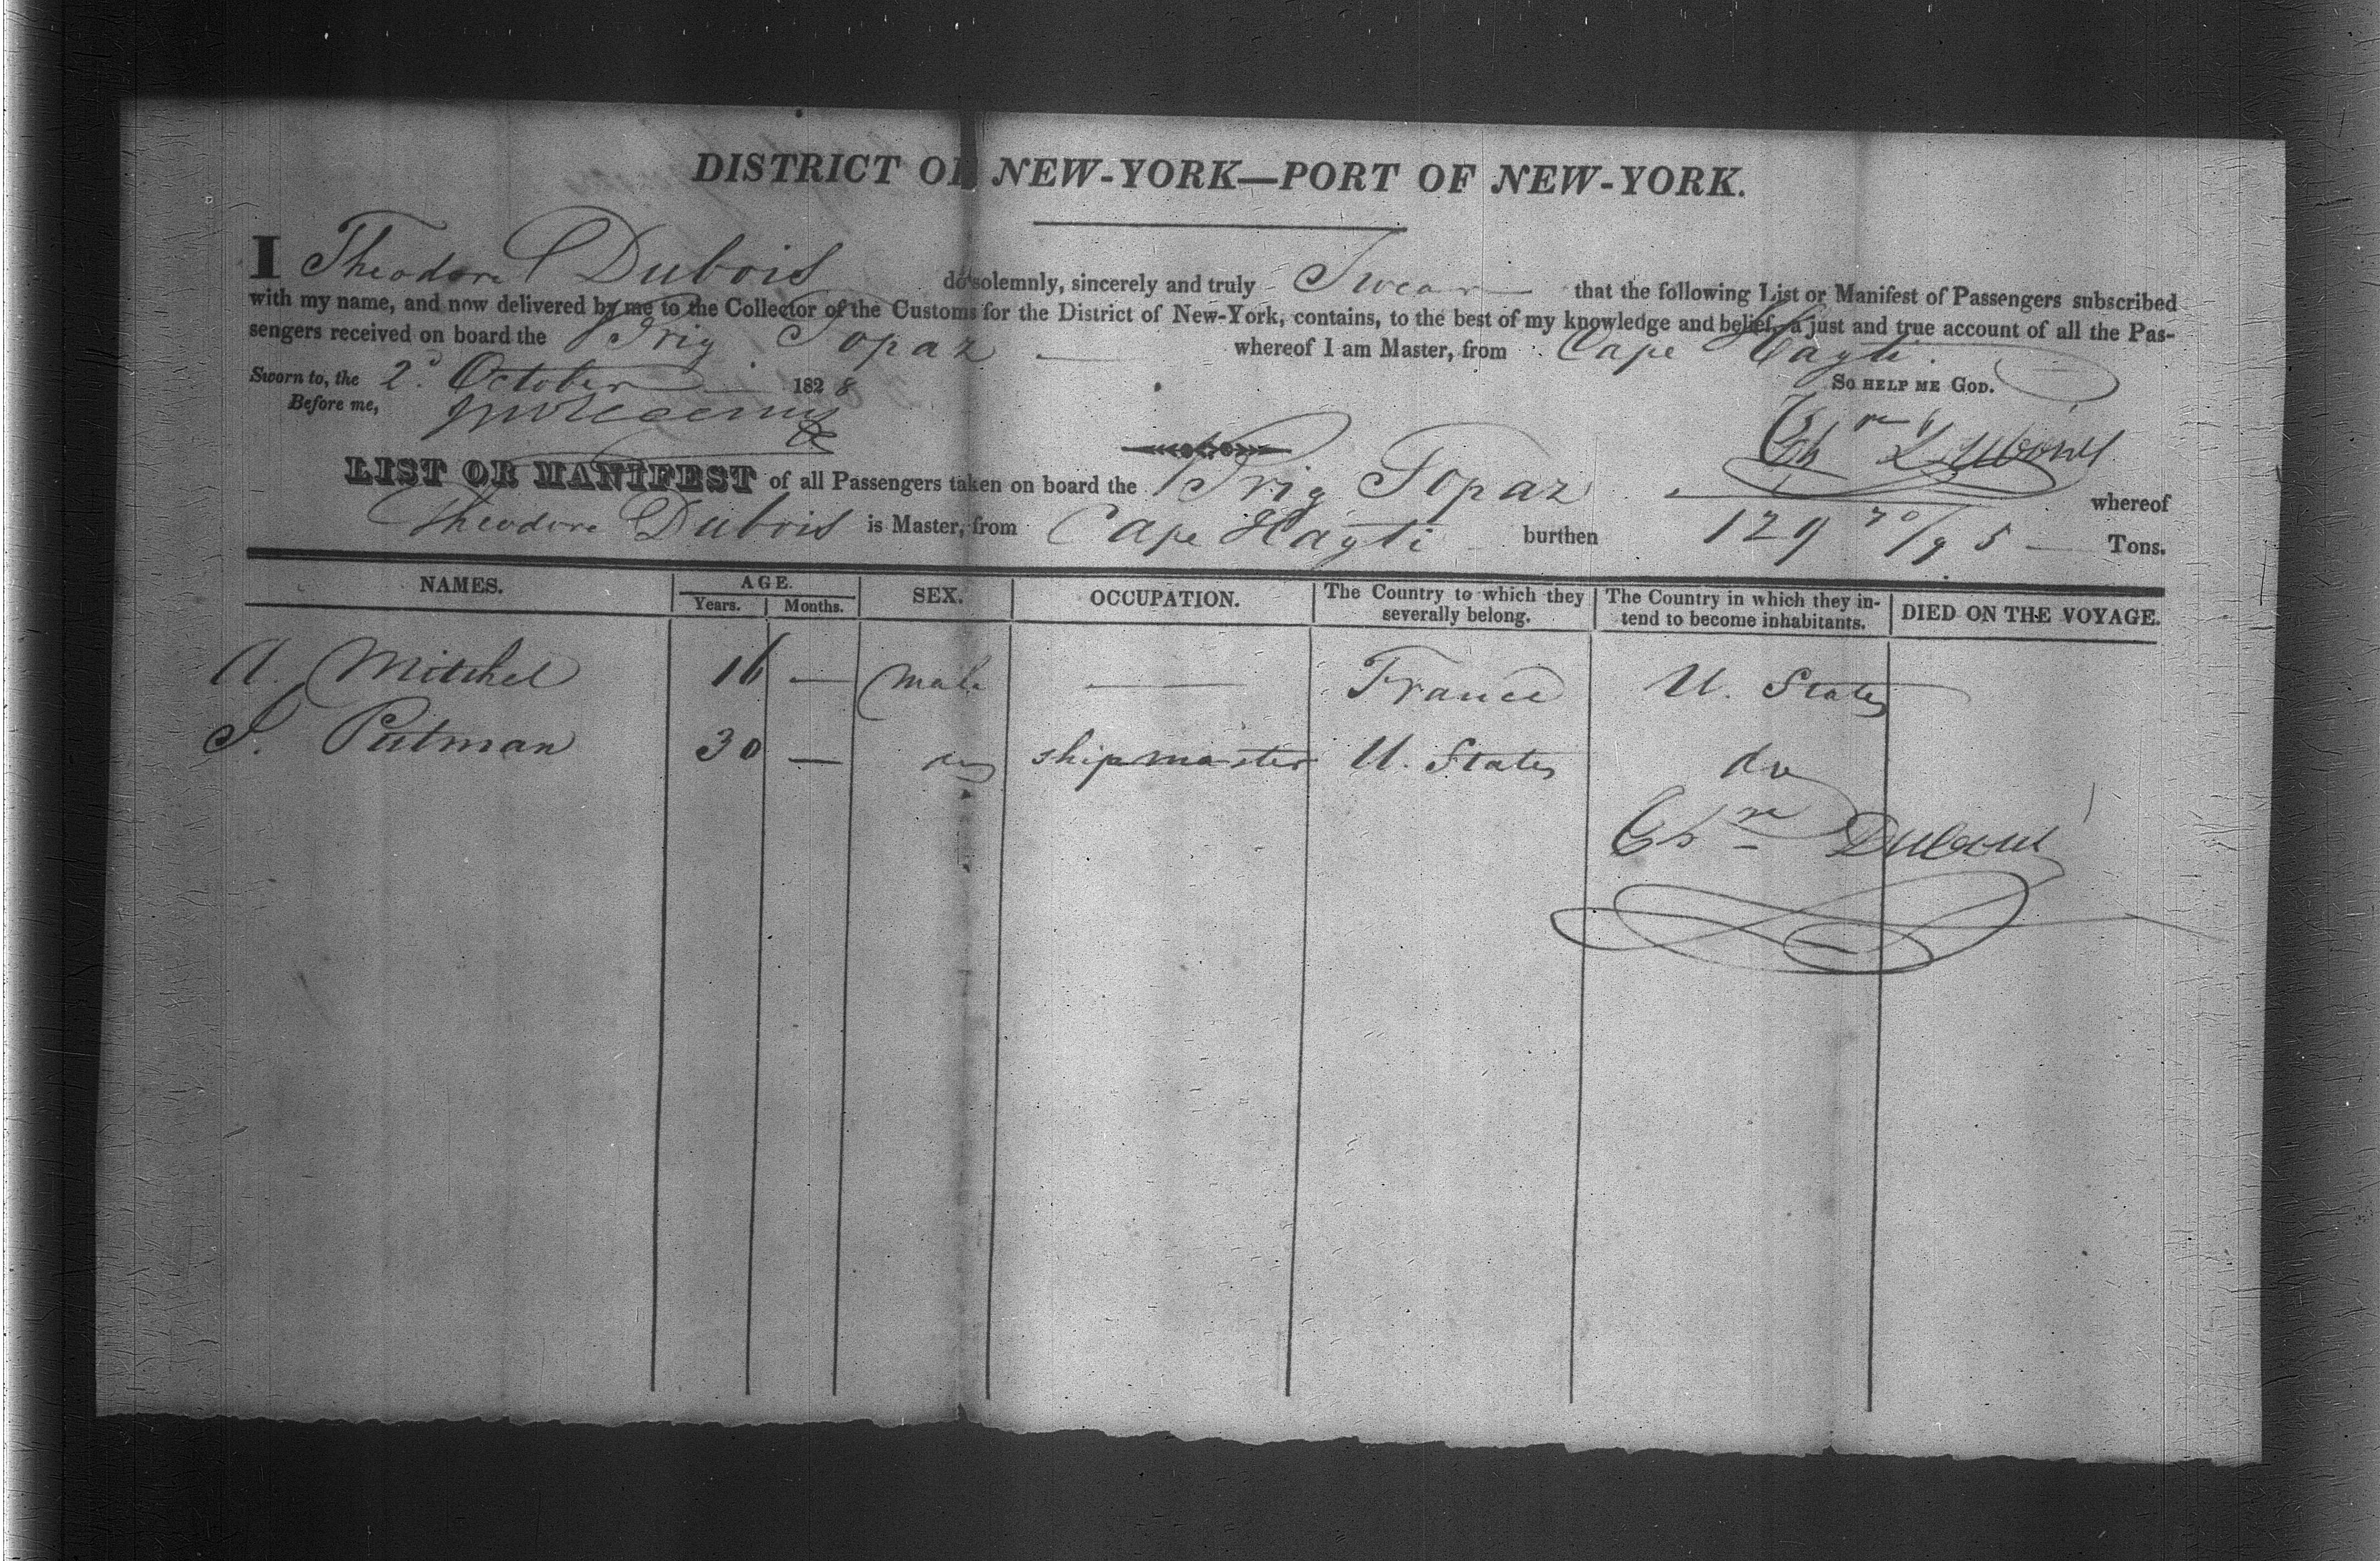 DISTRICT OF NEW-YORK—PORT OF NEW-YORK.
I Theodore Dubois do solemnly, sincerely and truly Swear that the following List or Manifest of Passengers subscribed
with my name, and now delivered by me to the Collector of the Customs for the District of New-York, contains, to the best of my knowledge and belief, a just and true account of all the Pas-
sengers received on board the Brig Topaz whereof I am Master, from Cape Hayti.
Sworn to, the 2d October 1828 SO HELP ME GOD.
Before me,
Thre Dubois
LIST OR MANIFEST of all Passengers taken on board the Brig Topaz whereof
Theodore Dubois is Master, from Cape Hayti burthen 129 70/95 Tons.
NAMES. AGE. Years. Months. SEX. OCCUPATION. The Country to which they severally belong. The Country in which they in-tend to become inhabitants. DIED ON THE VOYAGE.
A. Mitchel 16 — male — France U. States
S. Putman 30 — do shipmaster U. States do
Thre Dubois